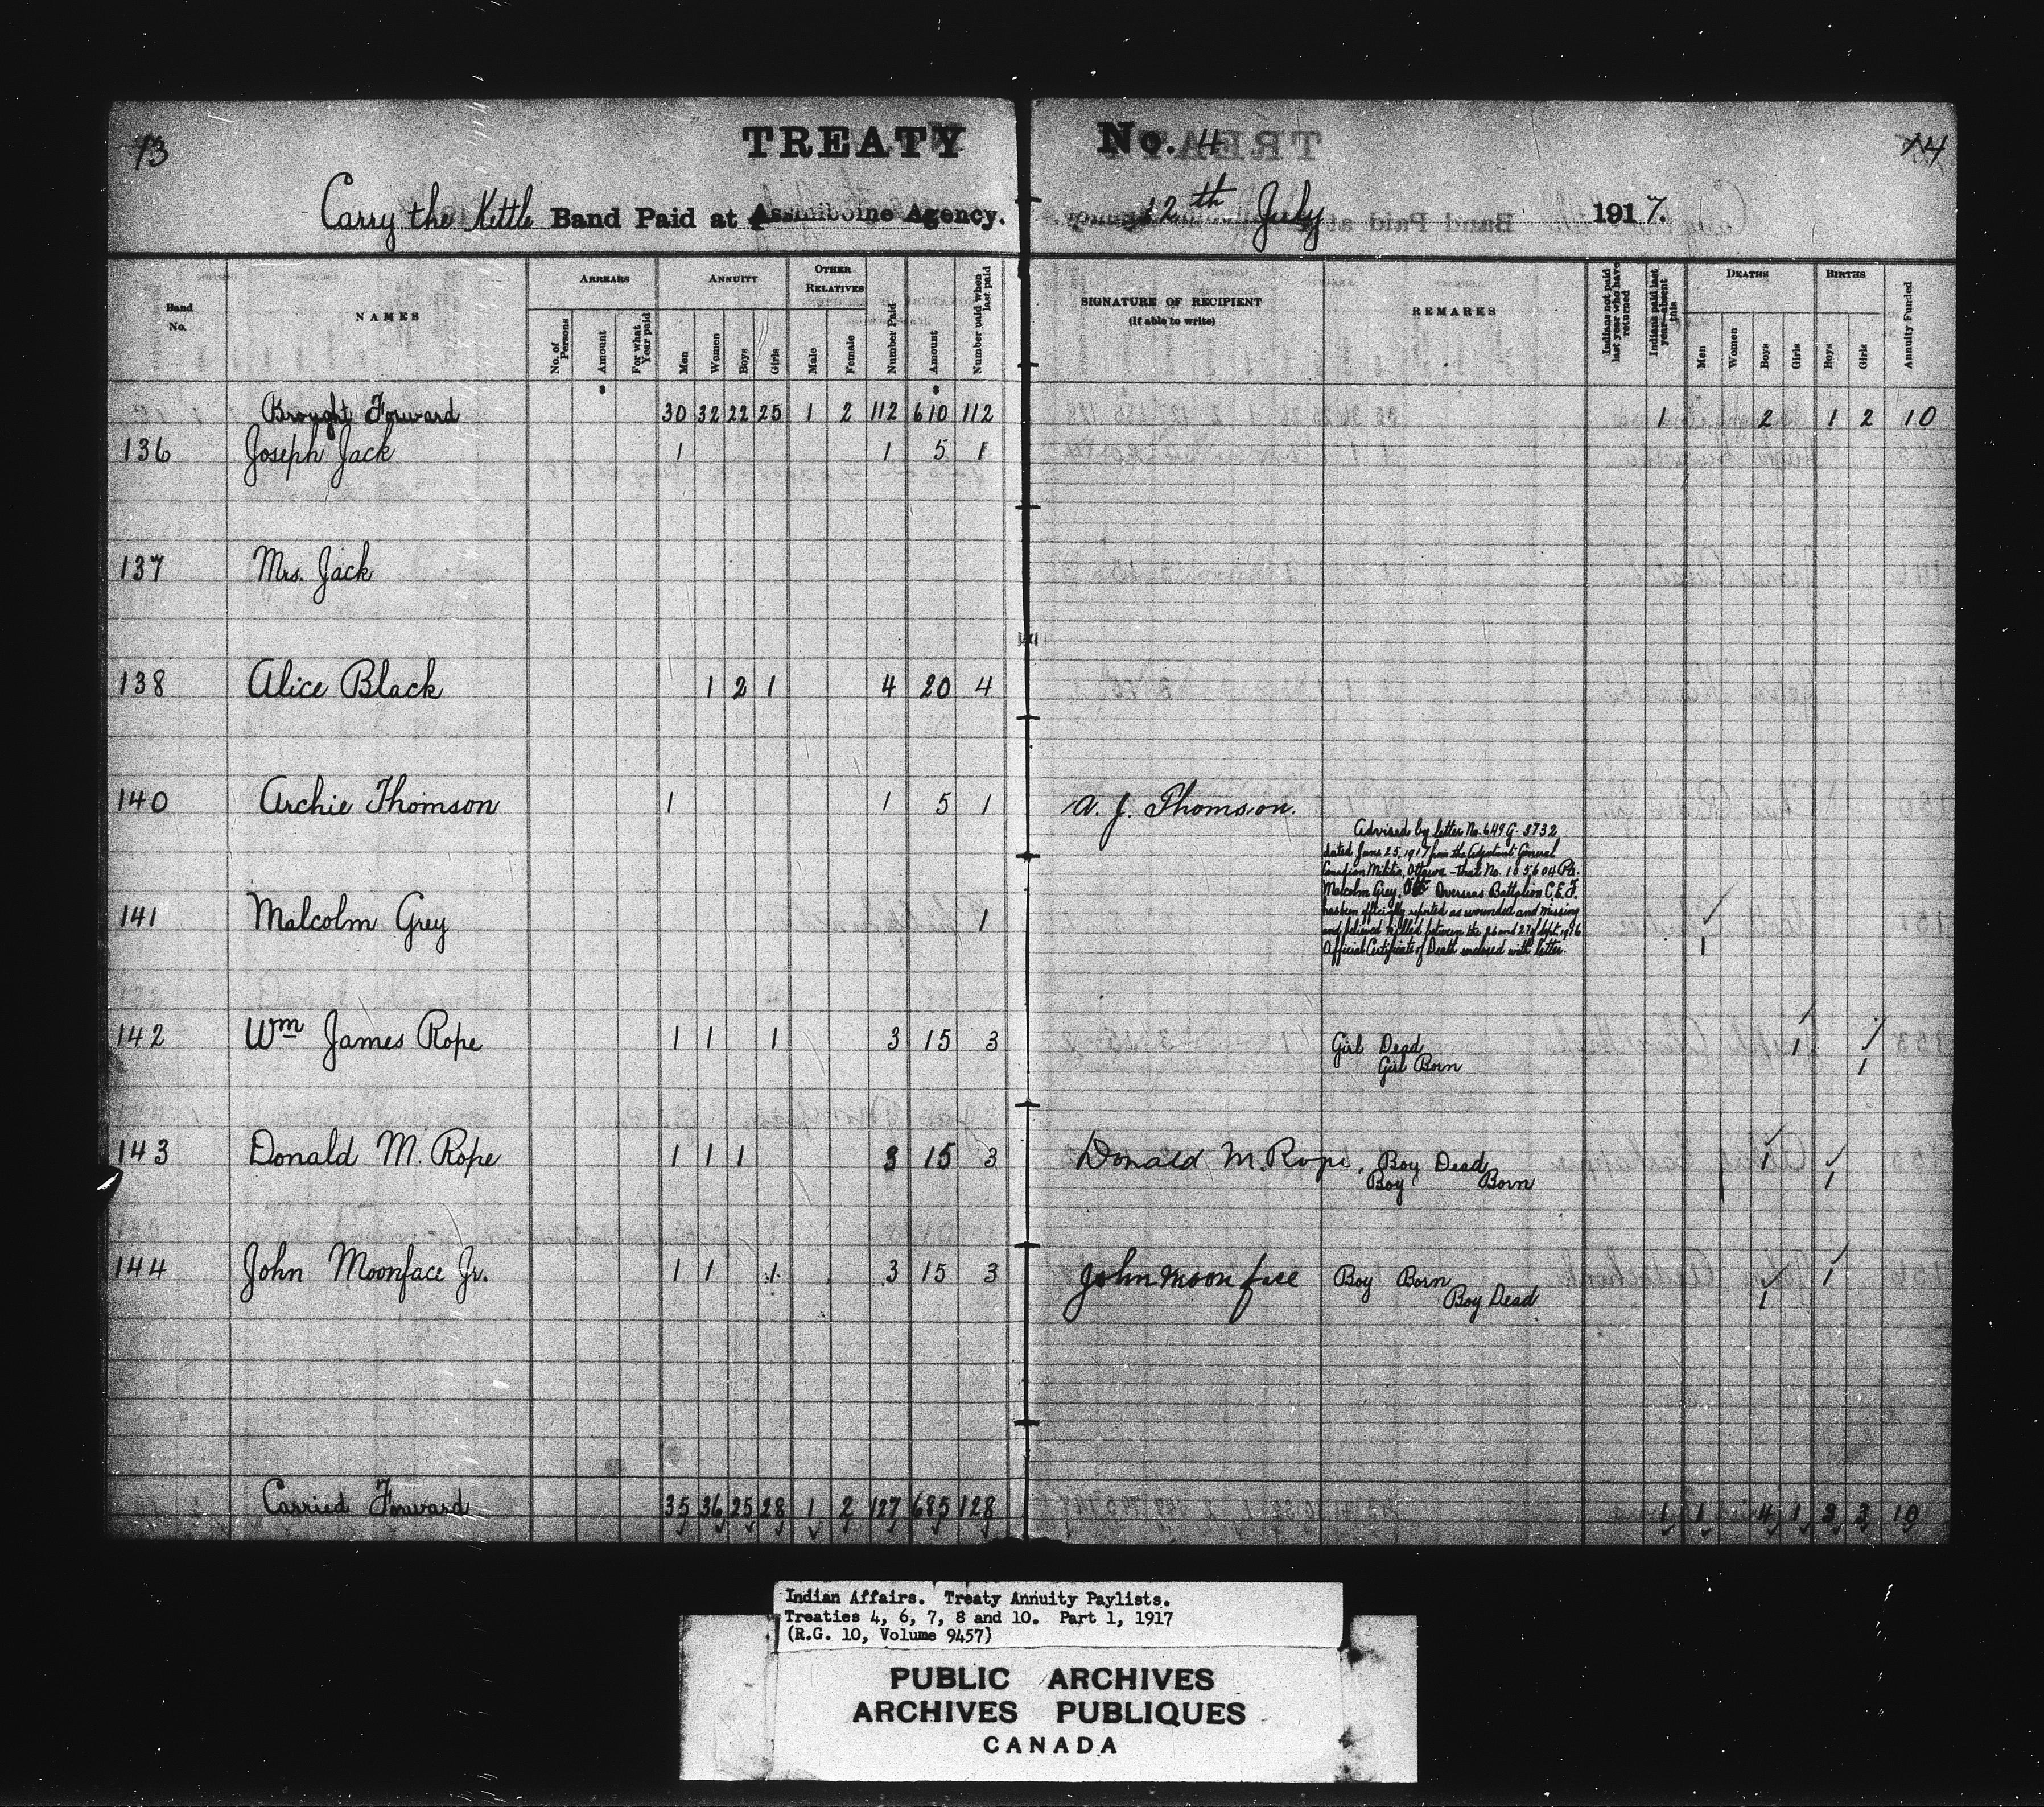 13
TREATY No. 4
14
Carry the Kettle Band Paid at Assiniboine Agency. 12th July 1917.
Band No.
NAMES
ARREARS
No. of Persons
Amount
For what Year paid
ANNUITY
Men
Women
Boys
Girls
OTHER RELATIVES
Male
Female
Number Paid
Amount
Number paid when last paid
SIGNATURE OF RECIPIENT
(If able to write)
REMARKS
Indians not paid last year who have returned
Indians paid last year—absent this
DEATHS
Men
Women
Boys
Girls
BIRTHS
Boys
Girls
Annuity Funded
$ $
Brought Forward 30 32 22 25 1 2 112 610 112 1 2 1 2 10
136 Joseph Jack 1 1 5 1
137 Mrs. Jack
138 Alice Black 1 2 1 4 20 4
140 Archie Thomson 1 1 5 1 A. J. Thomson.
Advised by letter No. 649 G. 3732
dated June 25, 1917 from the Adjutant General
Canadian Militia, Ottawa - that No. 105604 Pte.
Malcolm Grey, Overseas Battalion C.E.F.
has been officially reported as wounded and missing
and believed killed between the 26 and 27 of Sept. 1916
Official Certificate of Death enclosed with letter.
141 Malcolm Grey 1 1
142 Wm James Rope 1 1 1 3 15 3 Girl Dead 1
Girl Born 1
143 Donald M. Rope 1 1 1 3 15 3 Donald M. Rope. Boy Dead 1
Boy Born 1
144 John Moonface Jr. 1 1 1 3 15 3 John moon face Boy Born 1
Boy Dead 1
Carried Forward 35 36 25 28 1 2 127 685 128 1 1 4 1 3 3 10
Indian Affairs. Treaty Annuity Paylists.
Treaties 4, 6, 7, 8 and 10. Part 1, 1917
(R.G. 10, Volume 9457)
PUBLIC ARCHIVES
ARCHIVES PUBLIQUES
CANADA